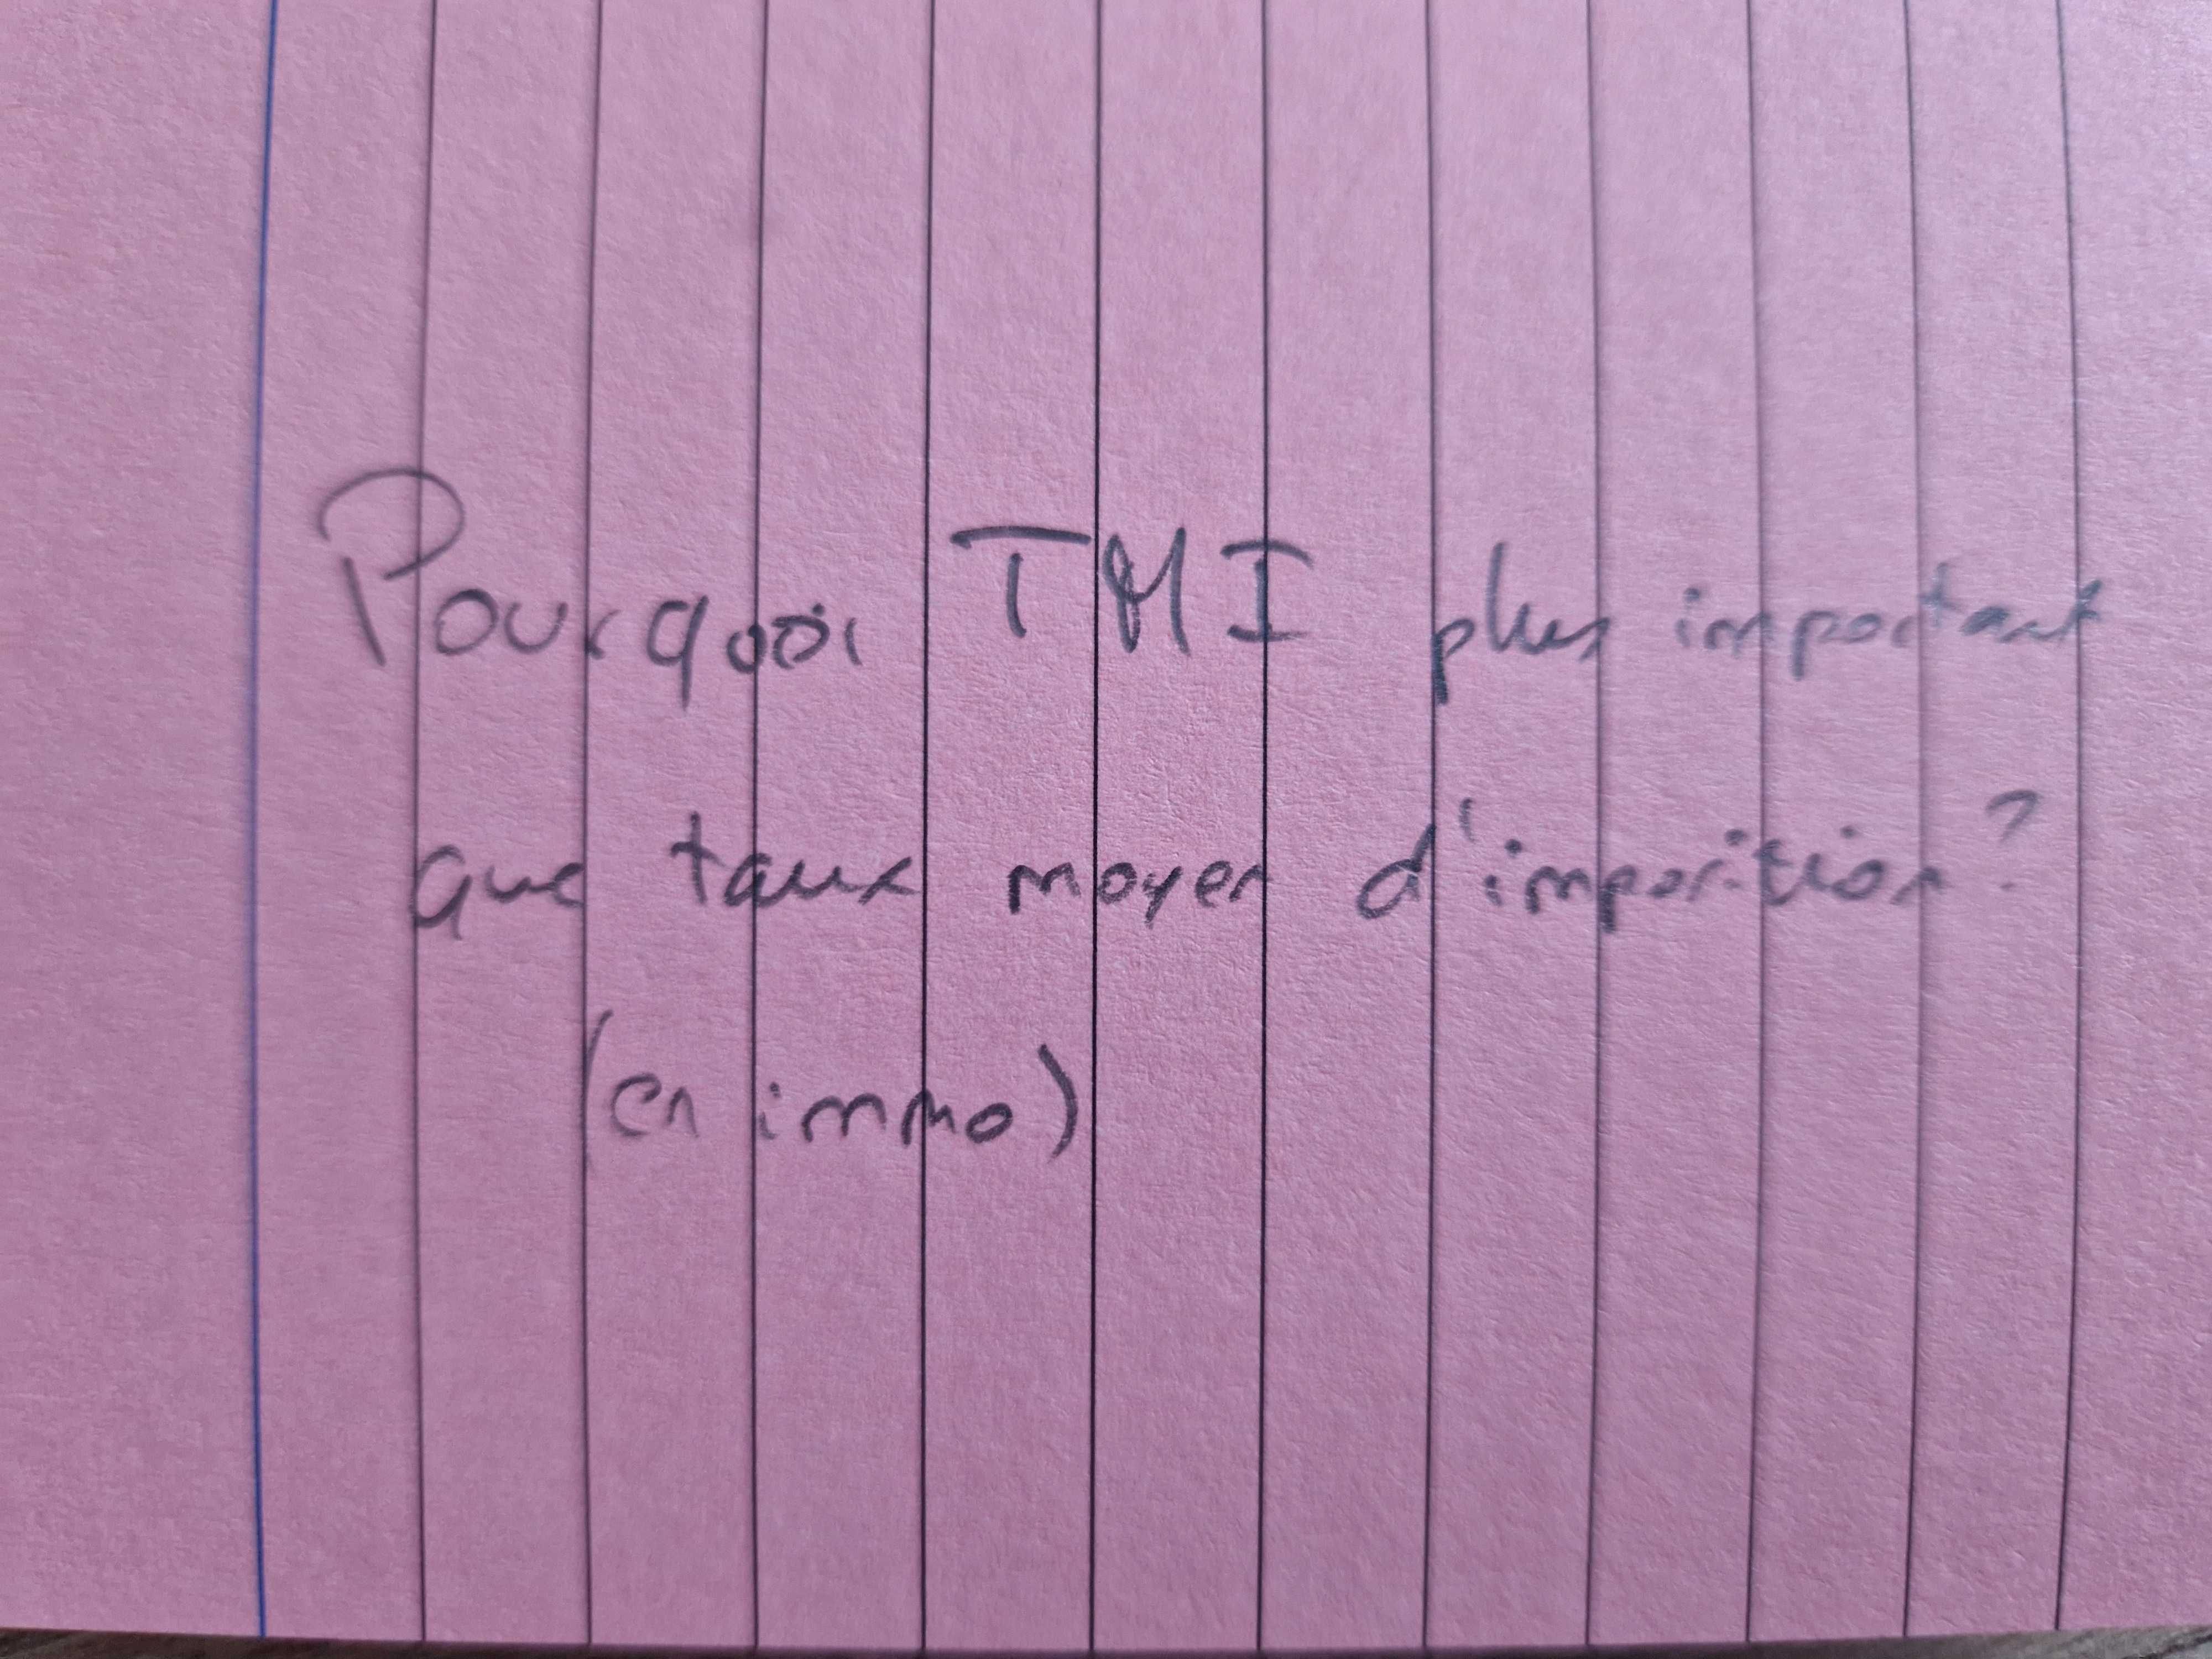 Pourquoi TMI plus important
que taux moyen d'imposition?
(en immo)